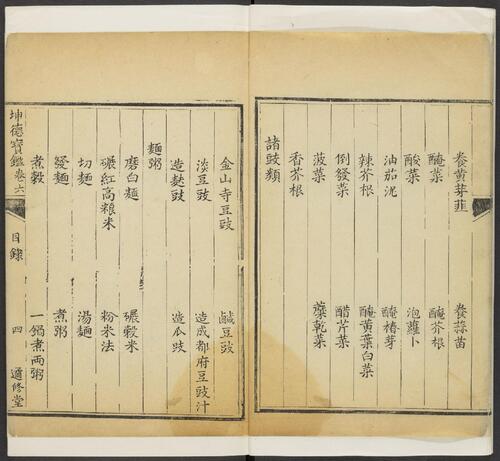 養黃芽韮 養蒜苗
醃菜 醃芥根
酸菜 泡蘿卜
油茄泥 醃椿芽
辣芥根 醃黃葉白菜
倒發菜 醋芹菜
菠菜 藻乾菜
香芥根
諸豉類
金山寺豆豉 鹹豆豉
淡豆豉 造成都府豆豉汁
造麩豉 造瓜豉
麵粥
磨白麵 碾穀米
碾紅高粮米 粉米法
切麵 湯麵
發麵 煮粥
煮穀 一鍋煮兩粥
坤德寶鑑卷六 目錄 四 適修堂